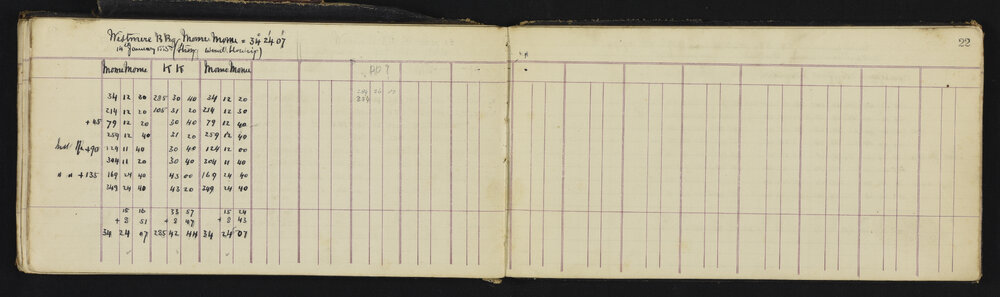 Westmere B Bg Momo Momo = 34° 24' 07"
14th January (Strong wind blowing)
22
Momo Momo K K Momo Momo
AD ?
34 12 20 285 30 40 34 12 20
214 12 20 105 31 20 214 12 30
+45 79 12 20 30 40 79 12 40
259 12 40 31 20 259 12 40
+90 124 11 40 30 40 124 12 00
304 11 20 30 40 204 11 40
" " +135 169 24 40 43 00 169 24 40
349 24 40 43 20 349 24 40
15 16 33 57 15 24
+ 8 51 + 8 47 + 8 43
34 24 07 285 42 44 34 24 07